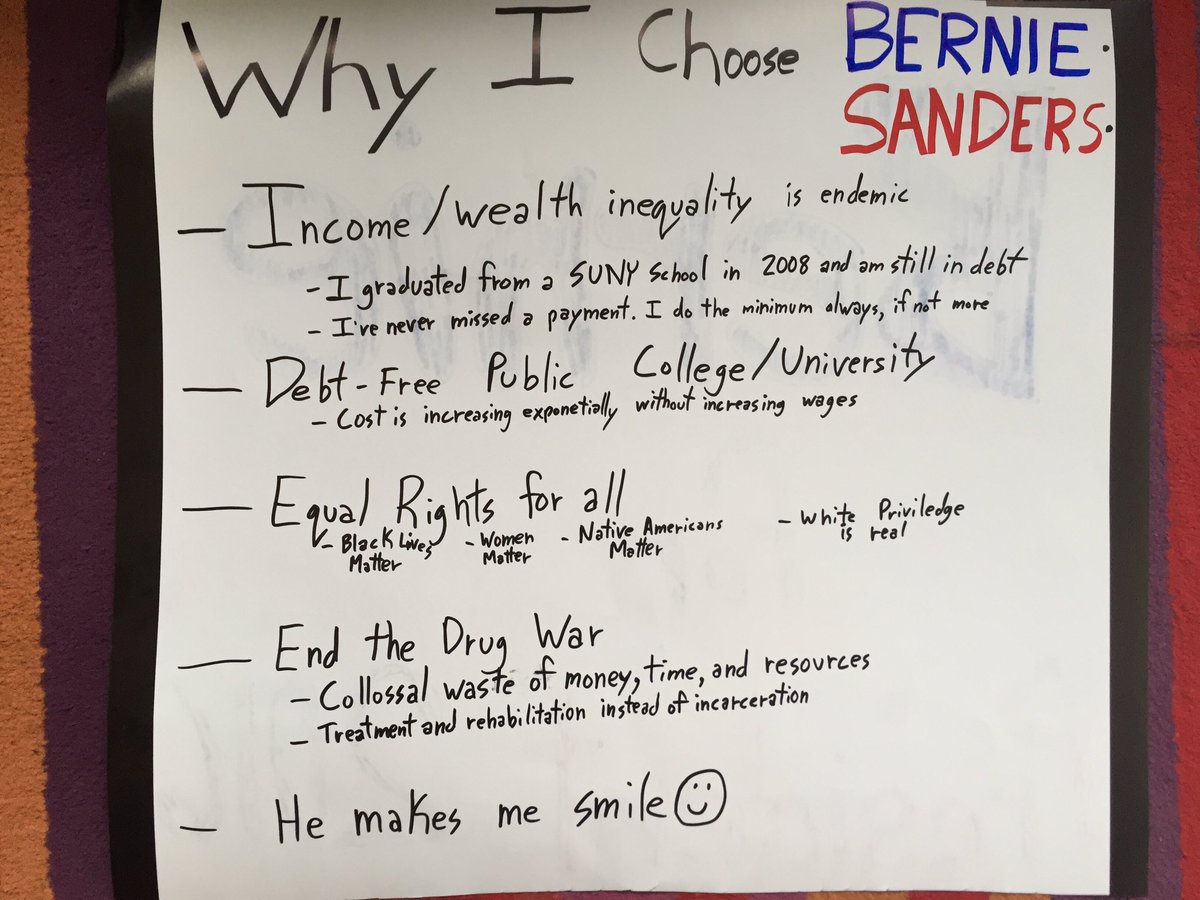 Why I Choose BERNIE
SANDERS
— Income/wealth inequality is endemic
- I graduated from a SUNY School in 2008 and am still in debt
- I've never missed a payment. I do the minimum always, if not more
— Debt-Free Public College/University
- Cost is increasing exponetially without increasing wages
— Equal Rights for all
- Black Lives Matter - Women Matter - Native Americans Matter - White Priviledge is real
— End the Drug War
- Collossal waste of money, time, and resources
- Treatment and rehabilitation instead of incarceration
— He makes me smile ☺